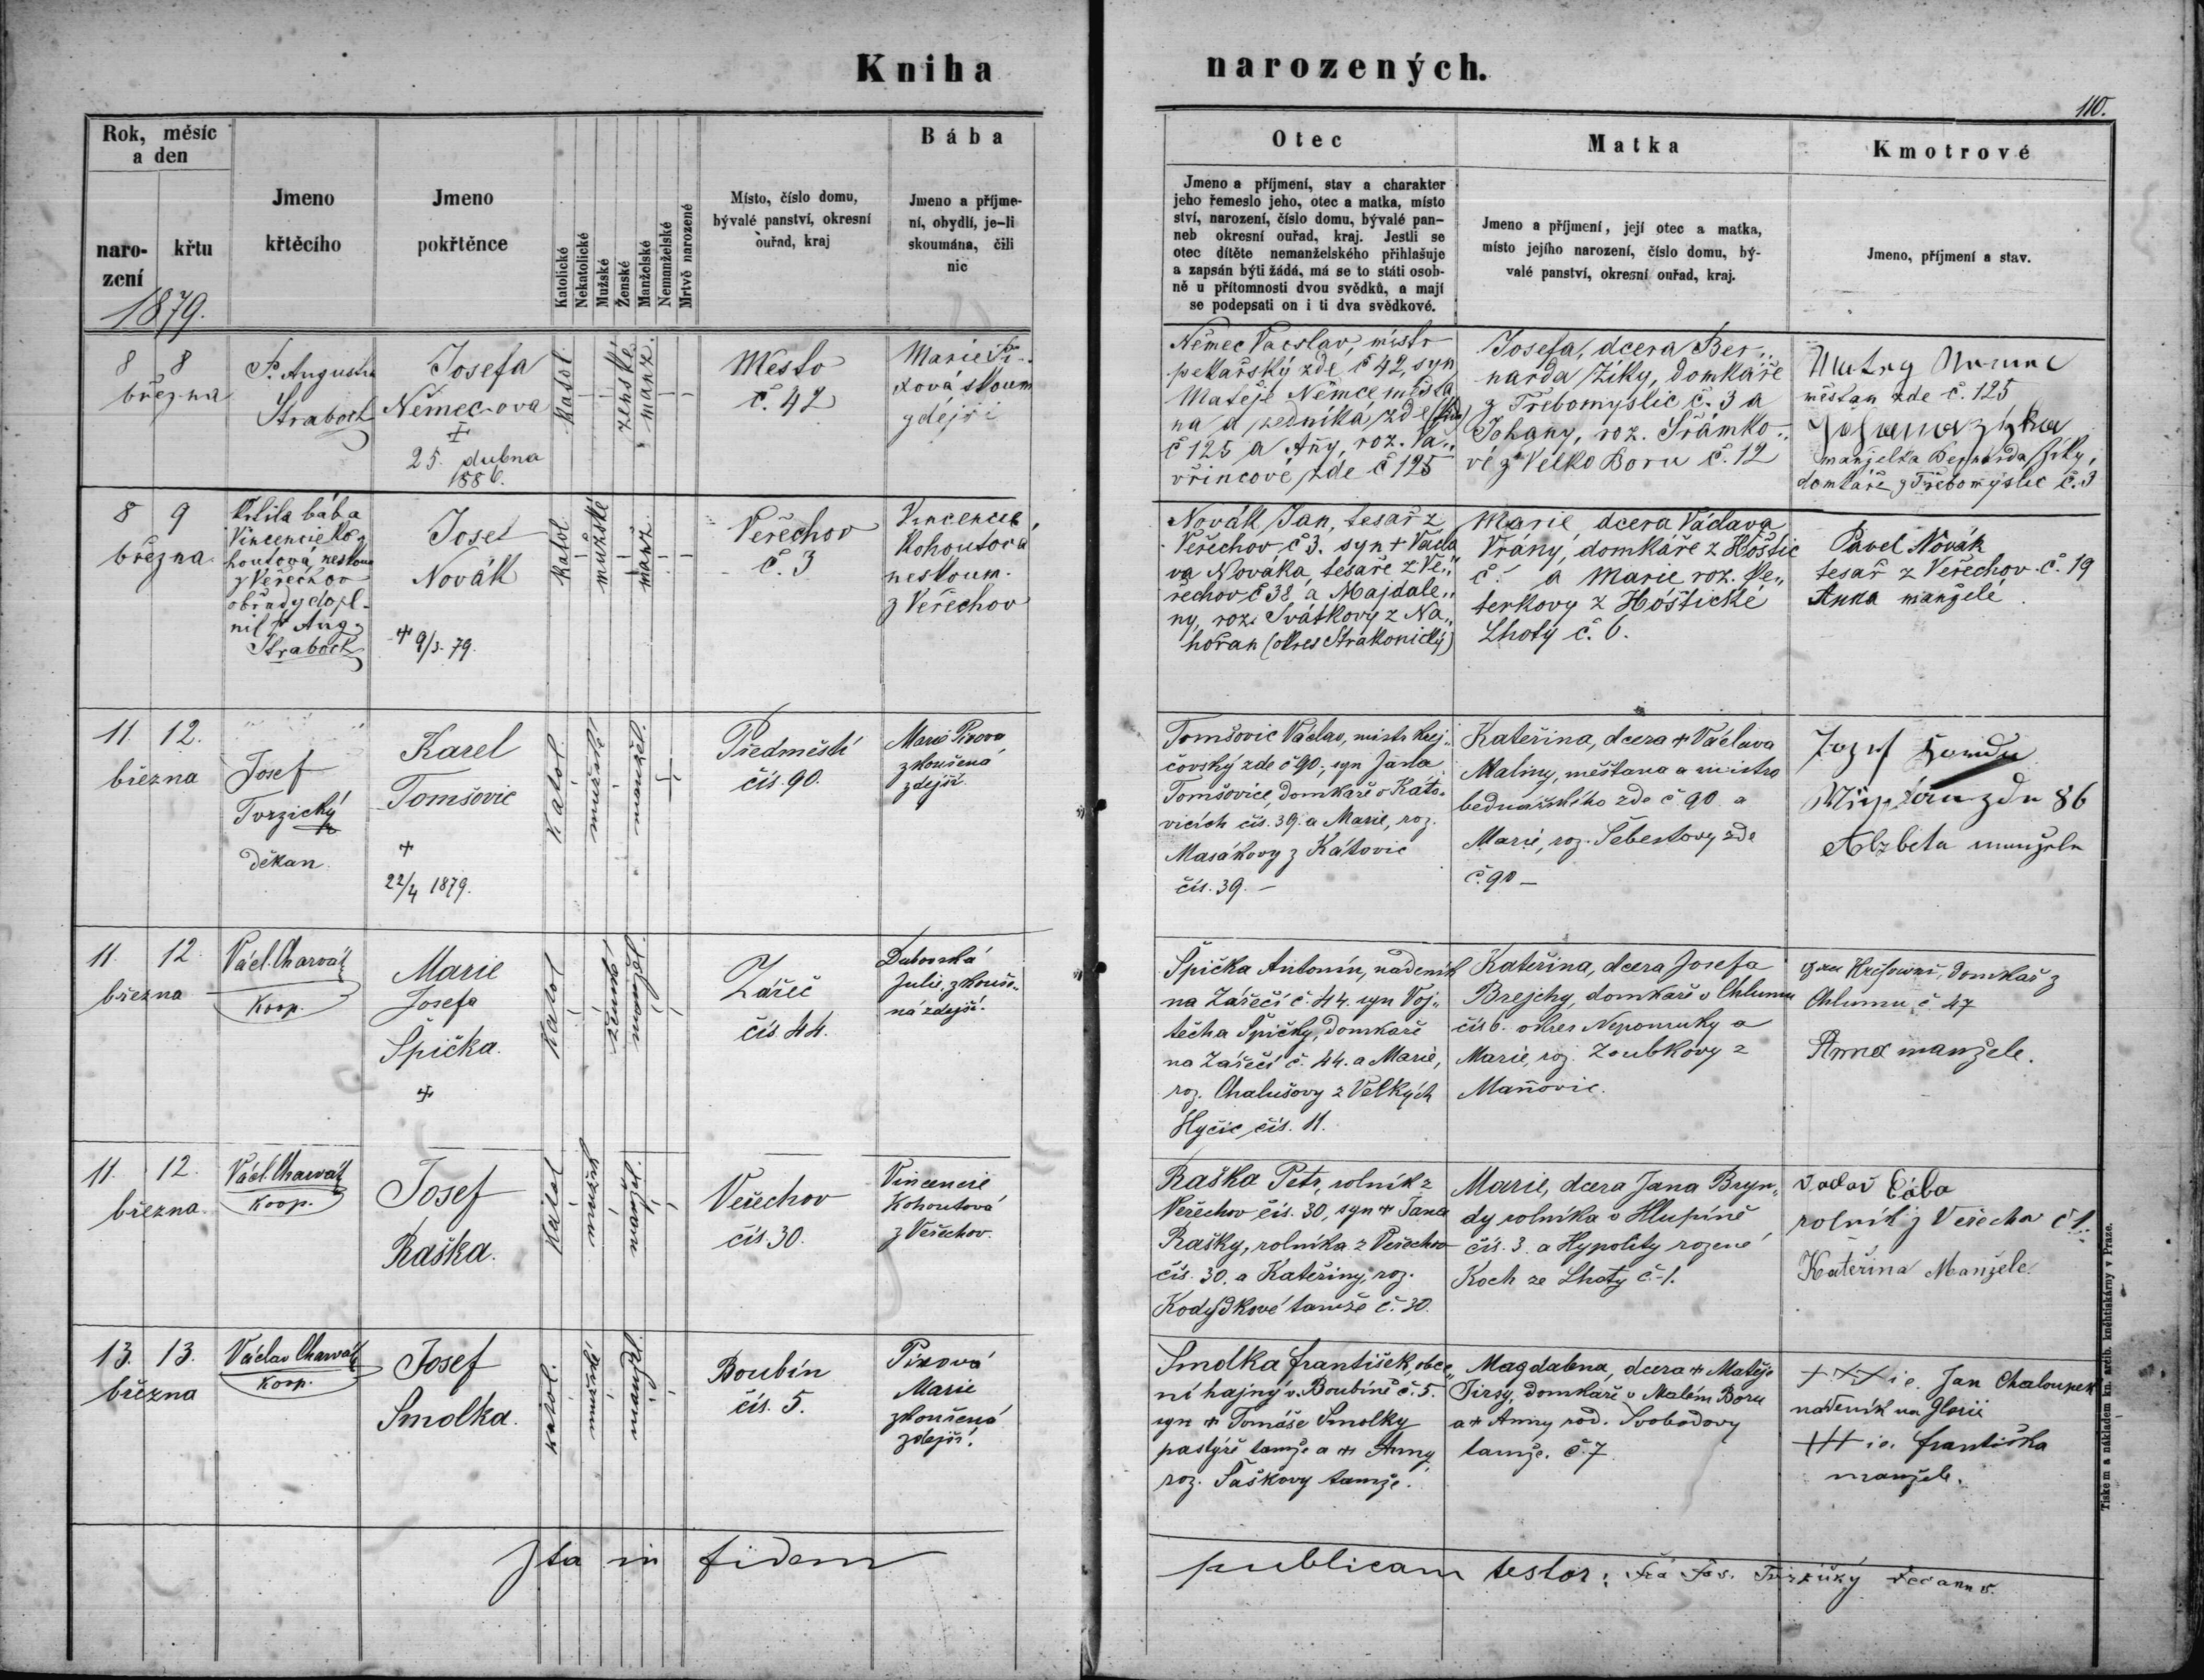 Kniha narozených.
110.
Rok, měsíc
a den
naro-
zení
křtu
1879.
Jmeno
křtěcího
Jmeno
pokřtěnce
Katolické
Nekatolické
Mužské
Ženské
Manželské
Nemanželské
Mrtvě narozené
Místo, číslo domu,
bývalé panství, okresní
ouřad, kraj
Bába
Jmeno a příjme-
ní, obydlí, je-li
skoumána, čili
nic
Otec
Jmeno a příjmení, stav a charakter
jeho řemeslo jeho, otec a matka, místo
ství, narození, číslo domu, bývalé pan-
neb okresní ouřad, kraj. Jestli se
otec dítěte nemanželského přihlašuje
a zapsán býti žádá, má se to státi osob-
ně u přítomnosti dvou svědků, a mají
se podepsati on i ti dva svědkové.
Matka
Jmeno a příjmení, její otec a matka,
místo jejího narození, číslo domu, bý-
valé panství, okresní ouřad, kraj.
Kmotrové
Jmeno, příjmení a stav.
8 8
března
P. Augustin
Straboch
Josefa
Němec-ova
25. dubna
1886.
katol.
ženské
manž.
Město
č. 42
Marie Pi-
xová skoum
zdejší
Němec Vacslav, mistr
pekařský zde č 42, syn
Matěje Němce měšťa
na a zedníka, zde
č 125 a Any, roz. Va„
vřincové, zde č 125
Josefa, dcera Ber„
narda Zíky, domkáře
z Třebomyslic č. 3 a
Johany, roz. Šrámko„
vé z Velko Boru č. 12
měštan zde č. 125
manželka Bernarda Zíky,
domkáře z Třebomyslic č. 3
8 9
března
Křtila bába
Vincencie Ko-
houtová, neskoum
z Veřechov
obřady dopl-
nil P. Aug.
Straboch
Josef
Novák
+ 9/3. 79.
katol
mužské
manž.
Veřechov
č. 3
Vincencie
Kohoutová
neskoum.
z Veřechov
Novák Jan, tesař z
Veřechov č 3. syn + Václa
va Nováka, tesaře z Ve„
řechov č 38 a Majdale„
ny, roz. Svátkovy z Na„
hořan (okres Strakonický)
Marie, dcera Václava
Vrány, domkáře z Hoštic
č. a Marie roz. Pe„
terkovy z Hoštické
Lhoty č. 6.
Pavel Novák
tesař z Veřechov č. 19
Anna manželé.
11. 12.
března
Josef
Tvrzický
děkan.
Karel
Tomšovic
+
22/4 1879.
Katol.
mužské
manžel.
Předměstí
čís. 90.
Marie Pixova
zkoušená
zdejší.
Tomšovic Václav, mistr krej„
čovský zde č 90, syn Jana
Tomšovice, domkáře v Káto„
vicích čís. 39. a Marie, roz.
Masákovy z Kátovic
čís. 39. –
Kateřina, dcera + Václava
Maliny, měštana a mistra
bednářského zde č. 90. a
Marie, roz. Šebestovy zde
č. 90 –
zde 86
Alzbeta manžele
11. 12.
března
Václ. Charvát
Koop.
Marie
Josefa
Špička.
+
Katol
ženské
manžel.
Zářeč
čís. 44.
Dubovská
Julie, zkouše„
ná zdejší.
Špička Antonín, nádeník
na Zářečí č. 44. syn Voj„
těcha Špičky, domkaře
na Zářečí č. 44. a Marie,
roz. Chalušovy z Velkých
Hyčic čís. 11.
Kateřina, dcera Josefa
Brejchy, domkáře v Chlumu
čís 6. okres Nepomuky a
Marie, roz. Zoubkovy z
Maňovic.
domkař z
Chlumu č 47
Anna manžele.
11. 12.
března.
Václ. Charvát
koop.
Josef
Raška.
Katol
mužské
manžel.
Veřechov
čís. 30.
Vincencie
Kohoutová
z Veřechov.
Raška Petr, rolník z
Veřechov čís. 30, syn + Jana
Rašky, rolníka z Veřechov
čís. 30. a Kateřiny, roz.
Kodýdkové tamže č. 30.
Marie, dcera Jana Bryn„
dy rolníka v Hlupíně
čís. 3. a Hypolity rozené
Koch ze Lhoty č. 1.
Cába
rolník z Veřechov č 1.
Kateřina Manžele.
13. 13.
března
Václav Charvát
Koop.
Josef
Smolka.
katol.
mužské
manžel.
Boubín
čís. 5.
Pixová
Marie
zkoušená
zdejší.
Smolka František, obec„
ní hajný v Boubíně č. 5.
syn + Tomáše Smolky
pastýře tamže a + Anny
roz. Šaškovy tamže.
Magdalena, dcera + Matěje
Jirsy, domkáře v Malém Boru
a + Anny rod. Svobodovy
tamže. č. 7.
+++ i e. Jan Chaloupek
nádeník na Glorii
+++ i e. Františka
manžele.
Ita in fidem publicam testor: Fra Jos. Tvrzický decanus.
Tiskem a nákladem kn. arcib. knihtiskárny v Praze.